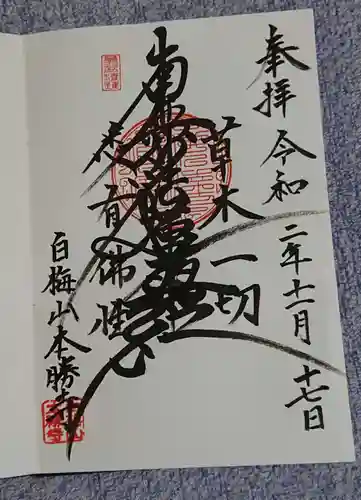 奉拝 令和二年十一月十七日
草木一切
南無妙法蓮華経
悉有佛性
白梅山本勝寺